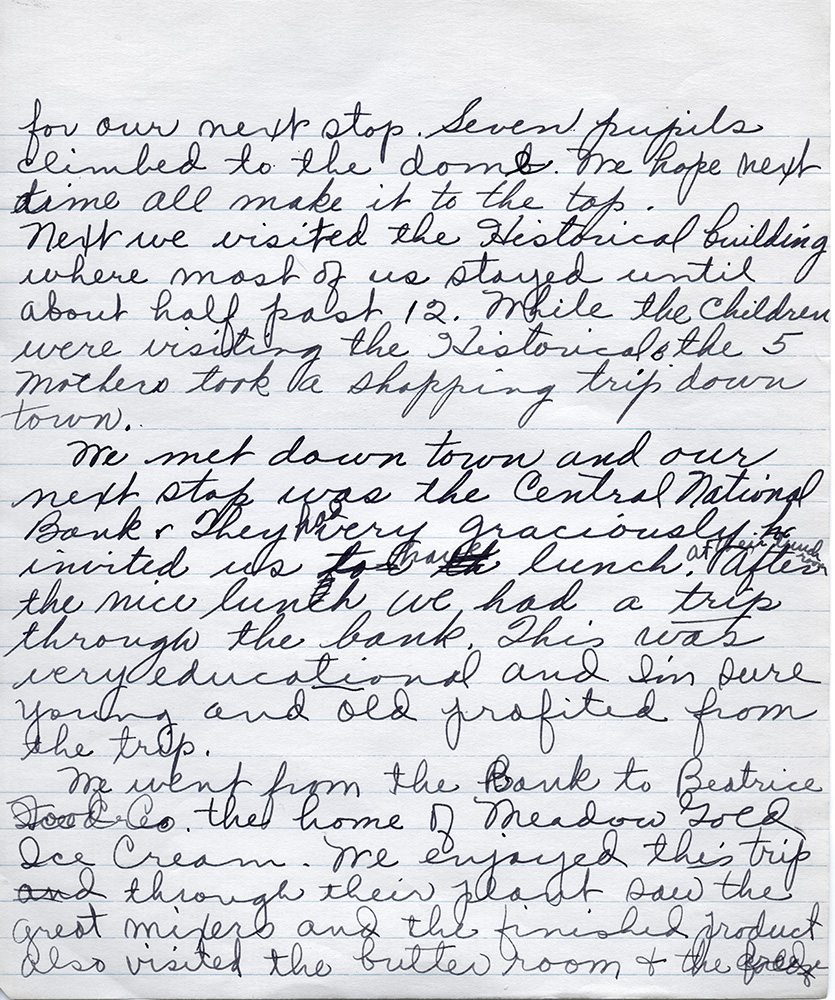 for our next stop. Seven pupils
climbed to the dome. We hope next
time all make it to the top.
Next we visited the Historical building
where most of us stayed until
about half past 12. While the Children
were visiting the Historical, the 5
Mothers took a shopping trip down
town.
We met down town and our
next stop was the Central National
Bank. They had very graciously
invited us to have lunch. at their lunch room After
the nice lunch we had a trip
through the bank. This was
very educational and I'm sure
Young and Old profited from
the trip.
We went from the Bank to Beatrice
Food Co. the home of Meadow Gold
Ice Cream. We enjoyed this trip
and through their plant saw the
great mixers and the finished product
also visited the butter room & the